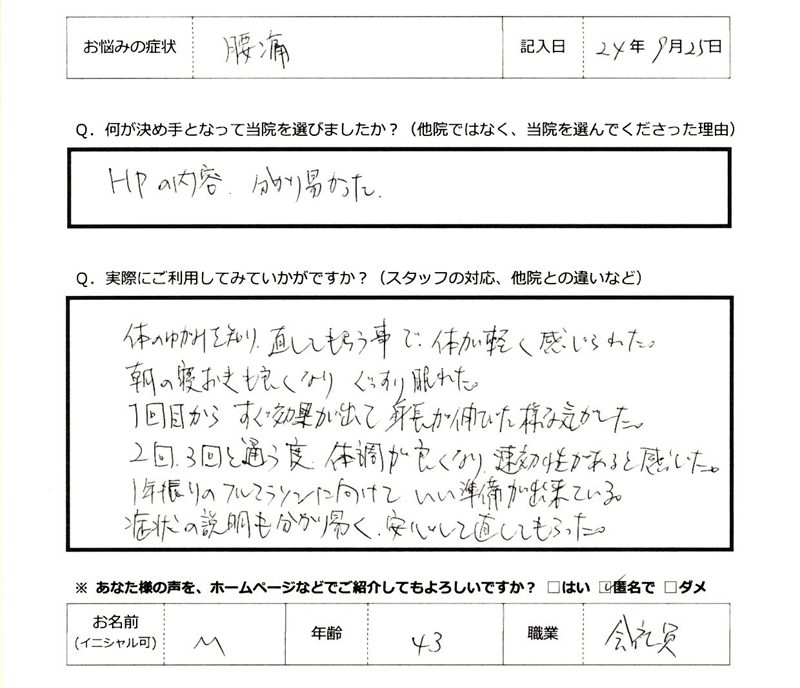 お悩みの症状 腰痛 記入日 24年 9月25日
Q. 何が決め手となって当院を選びましたか？（他院ではなく、当院を選んでくださった理由）
HPの内容、分かり易かった。
Q. 実際にご利用してみていかがですか？（スタッフの対応、他院との違いなど）
体のゆがみを知り、直してもらう事で、体が軽く感じられた。
朝の寝おきも良くなり ぐっすり眠れた。
1回目から すぐ効果が出て 身長が伸びた様な気がした。
2回、3回と通う度、体調が良くなり、速効性があると感じた。
1年振りのフルマラソンに向けて いい準備が出来ている。
症状の説明も分かり易く、安心して直してもらった。
※ あなた様の声を、ホームページなどでご紹介してもよろしいですか？ □はい ☑匿名で □ダメ
お名前 M 年齢 43 職業 会社員
(イニシャル可)